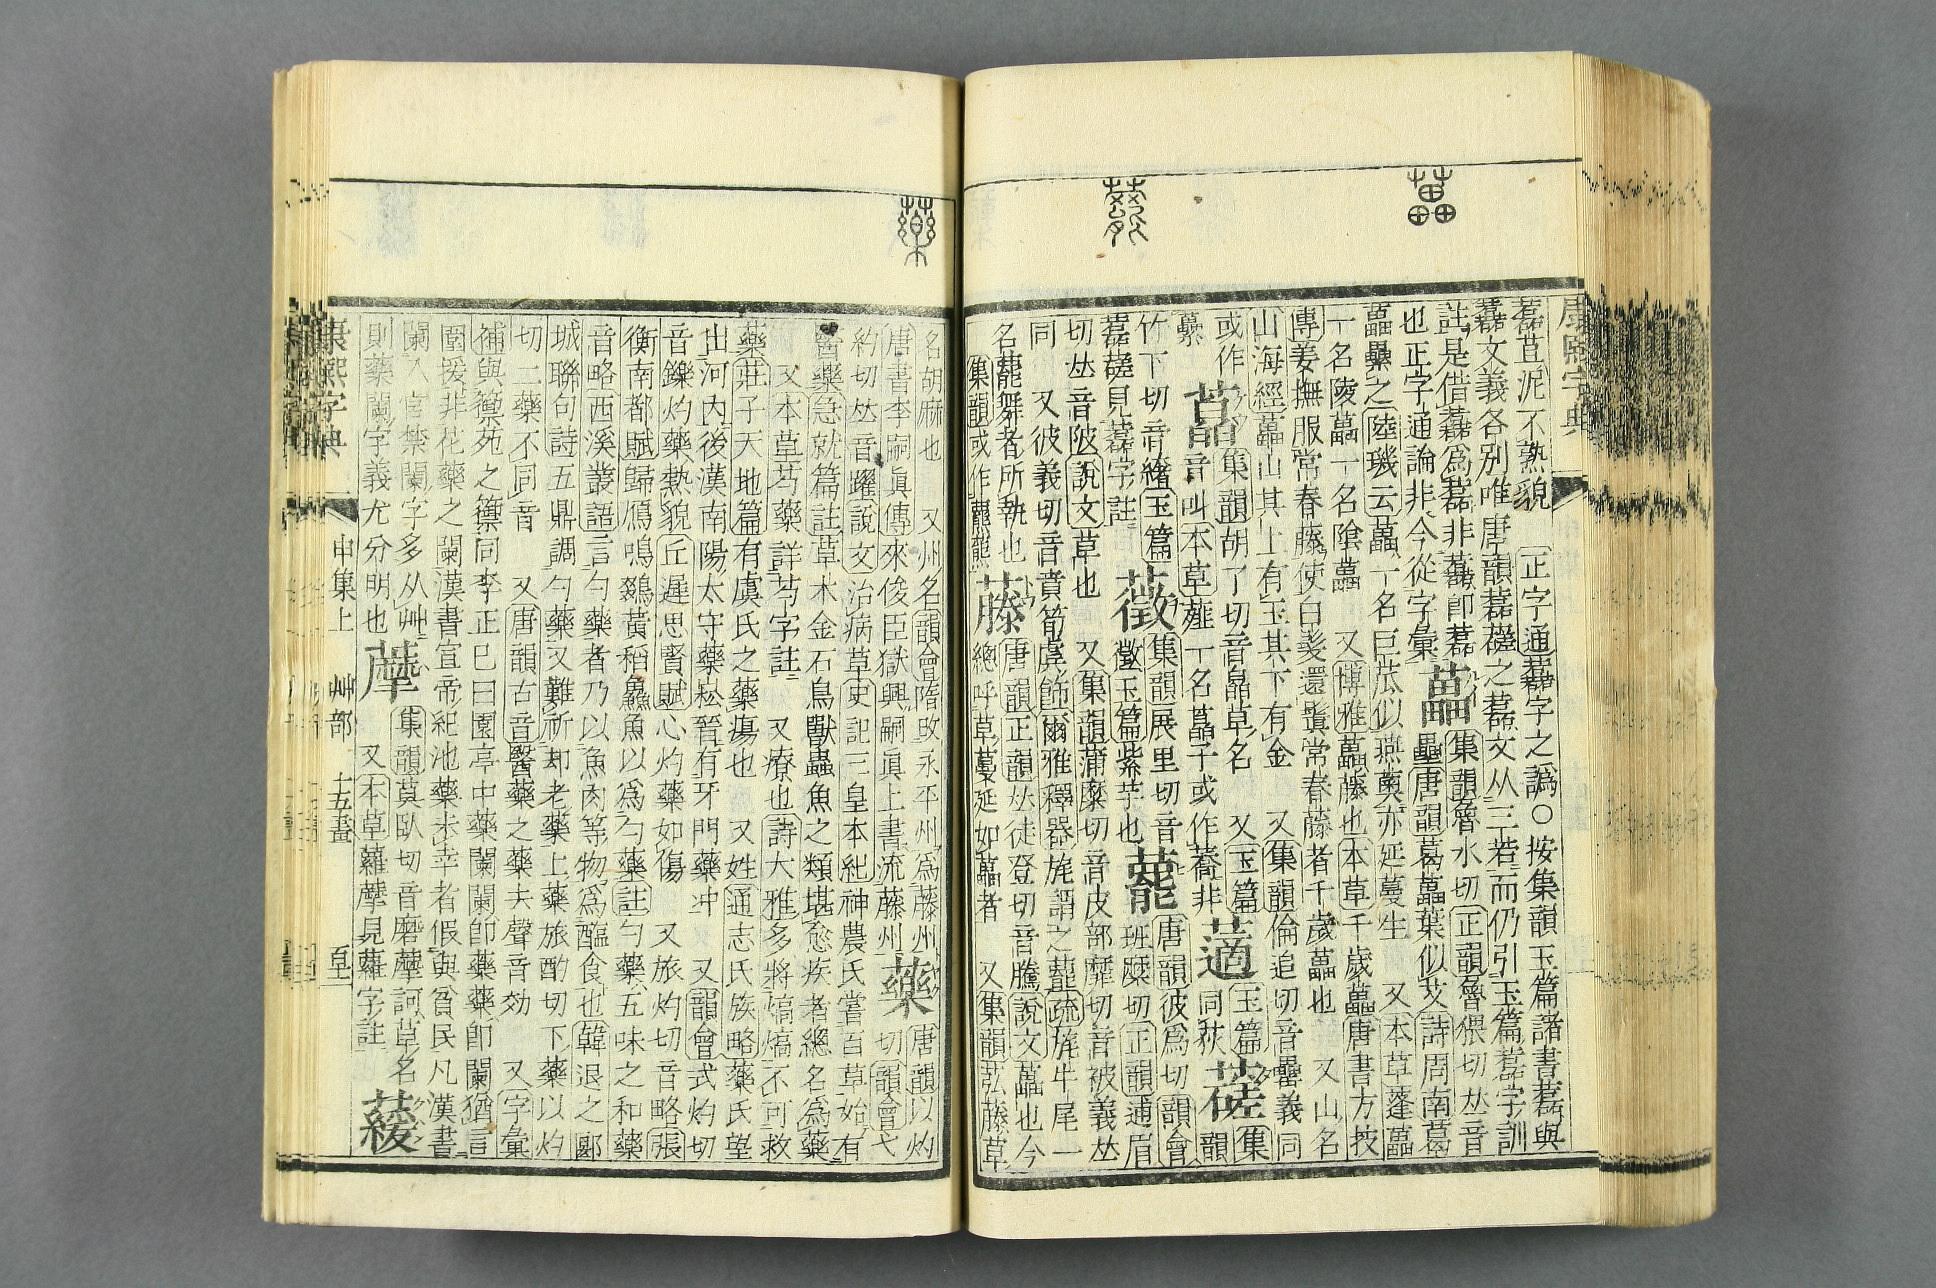 康熙字典
藟
藥
藞苴泥不熟貌 正字通藞字之譌○按集韻玉篇諸書藞與
文義各別唯唐韻藞䕢之藞文从三若而仍引玉篇藞字訓
註是借 爲藞非 卽藞 藟 集韻魯水切正韻魯猥切𠀤音
也正字通論非今從字彙 壘唐韻葛藟葉似艾詩周南葛
藟纍之陸璣云藟一名巨苽似燕薁亦延蔓生 又本草蓬藟
一名陵藟一名陰藟 又博雅藟藤也本草千歲藟唐書方技
傳姜撫服常春藤使白髮還鬒常春藤者千歲藟也 又山名
山海經藟山其上有玉其下有金 又集韻倫追切音纍義同
或作 藠 集韻胡了切音皛草名 又玉篇 藡 玉篇 蒫 集
音叫本草薤一名藠子或作蕎非 同荻 韻
竹下切音緒玉篇 薇 集韻展里切音 䕗 唐韻彼爲切韻會
藞䕢見藞字註 徵玉篇紫芋也 班麋切正韻逋眉
切𠀤音陂說文草也 又集韻蒲糜切音皮部靡切音被義𠀤
同 又彼義切音賁筍虡飾爾雅釋器旄謂之䕗疏旄牛尾一
名䕗舞者所執也 藤 唐韻正韻𠀤徒登切音騰說文藟也今
集韻或作 總呼草蔓延如藟者 又集韻 藤草
名胡麻也 又州名韻會隋改永平州爲藤州 藥 唐韻以灼
唐書李嗣眞傳來俊臣獄興嗣眞上書流藤州 切韻會弋
約切𠀤音躍說文治病草史記三皇本紀神農氏嘗百草始有
醫藥急就篇註草木金石鳥獸蟲魚之類堪愈疾者總名爲藥
又本草芍藥詳芍字註 又療也詩大雅多將熇熇不可救
藥莊子天地篇有虞氏之藥瘍也 又姓通志氏族略藥氏望
出河內後漢南陽太守藥崧晉有牙門藥冲 又韻會式灼切
音鑠灼藥熱貌丘遲思賢賦心灼藥如傷 又旅灼切音略張
衡南都賦歸鴈鳴鵽黃稻鱻魚以爲勺藥註勺藥五味之和藥
音略西溪叢語言勺藥者乃以魚肉等物爲醢食也韓退之郾
城聯句詩五鼎調勺藥又難祈却老藥上藥旅酌切下藥以灼
切二藥不同音 又唐韻古音醫藥之藥去聲音効 又字彙
補與籞苑之籞同李正己曰園亭中藥闌闌卽藥藥卽闌猶言
圍援非花藥之闌漢書宣帝紀池藥未幸者假與貧民凡漢書
闌入宮禁闌字多从艸 藦 集韻莫臥切音磨藦訶草名 薐
則藥闌字義尤分明也 又本草蘿藦見蘿字註
康熙字典
申集上 艸部 十五畫